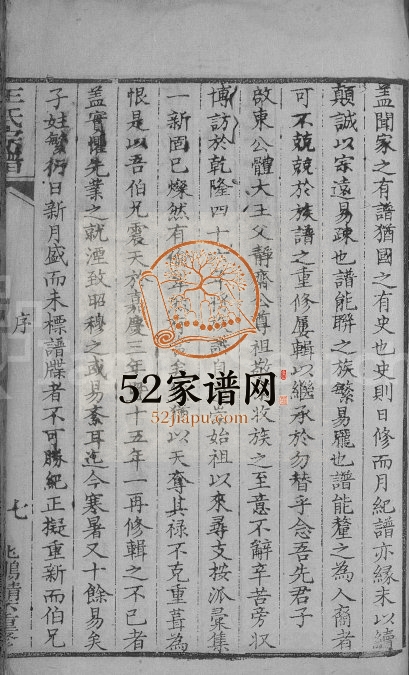 蓋聞家之有譜猶國之有史也史則日修而月紀譜亦緣末以續
顛誠以宗遠易疎也譜能聯之族繁易龐也譜能釐之為人裔者
可不兢兢於族譜之重修屢輯以繼承於勿替乎念吾先君子
啟東公體大王父靜齋公尊祖敬 收族之至意不辭辛苦旁収
博訪於乾隆四十 年 譜 始祖以來尋支按派彙集
一新固已燦然有 以天奪其祿不克重葺為
恨是以吾伯兄震天於嘉慶三年 十五年一再修輯之不已者
蓋實懼先業之就湮致昭穆之或易紊耳迄今寒暑又十餘易矣
子姓繁衍日新月盛而未標譜牒者不可勝紀正擬重新而伯兄
王氏宗譜
序
七
52家谱网
52jiapu.com